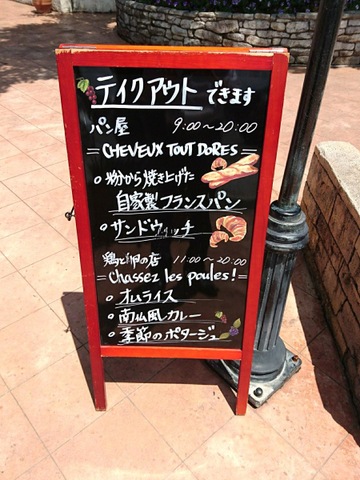 テイクアウトできます
パン屋 9:00〜20:00
=CHEVEUX TOUT DORES=
○粉から焼き上げた
自家製フランスパン
○サンドウィッチ
鶏と卵の店 11:00〜20:00
=Chassez les poules!=
○オムライス
○南仏風カレー
○季節のポタージュ